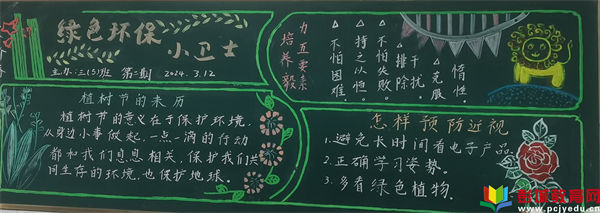 绿色环保
小卫士
主办:三(5)班 第二期 2024.3.12
植树节的来历
植树节的意义在于保护环境,
从身边小事做起,一点一滴的行动
都和我们息息相关,保护我们共
同生存的环境,也保护地球。
培养毅
力五要素
△不怕困难
△持之以恒
△不怕失败
△排除干扰
△克服惰性
怎样预防近视
1.避免长时间看电子产品。
2.正确学习姿势。
3.多看绿色植物。
彭城教育网
www.pcjyedu.cn